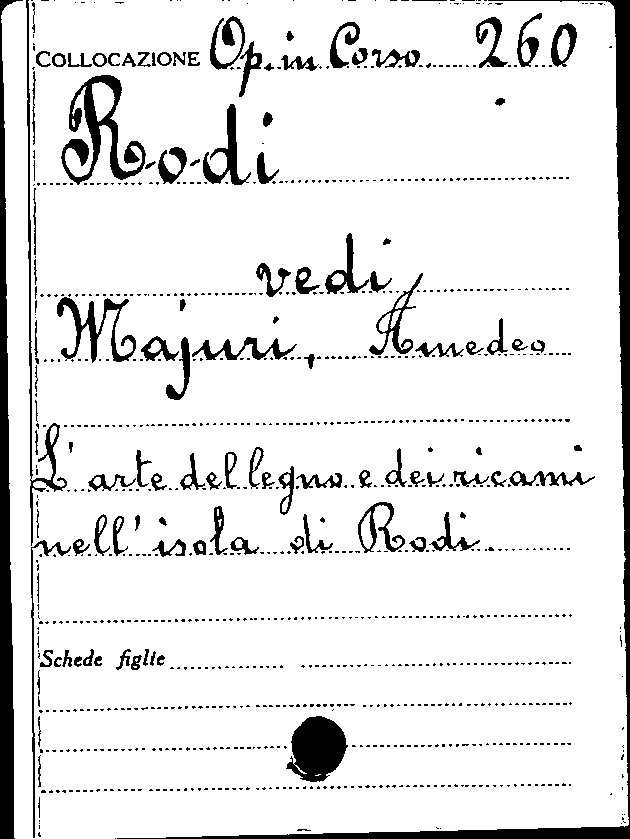 COLLOCAZIONE Op. in Corso. 260
Rodi
vedi
Majuri, Amedeo
L'arte del legno e dei ricami
nell'isola di Rodi.
Schede figlie